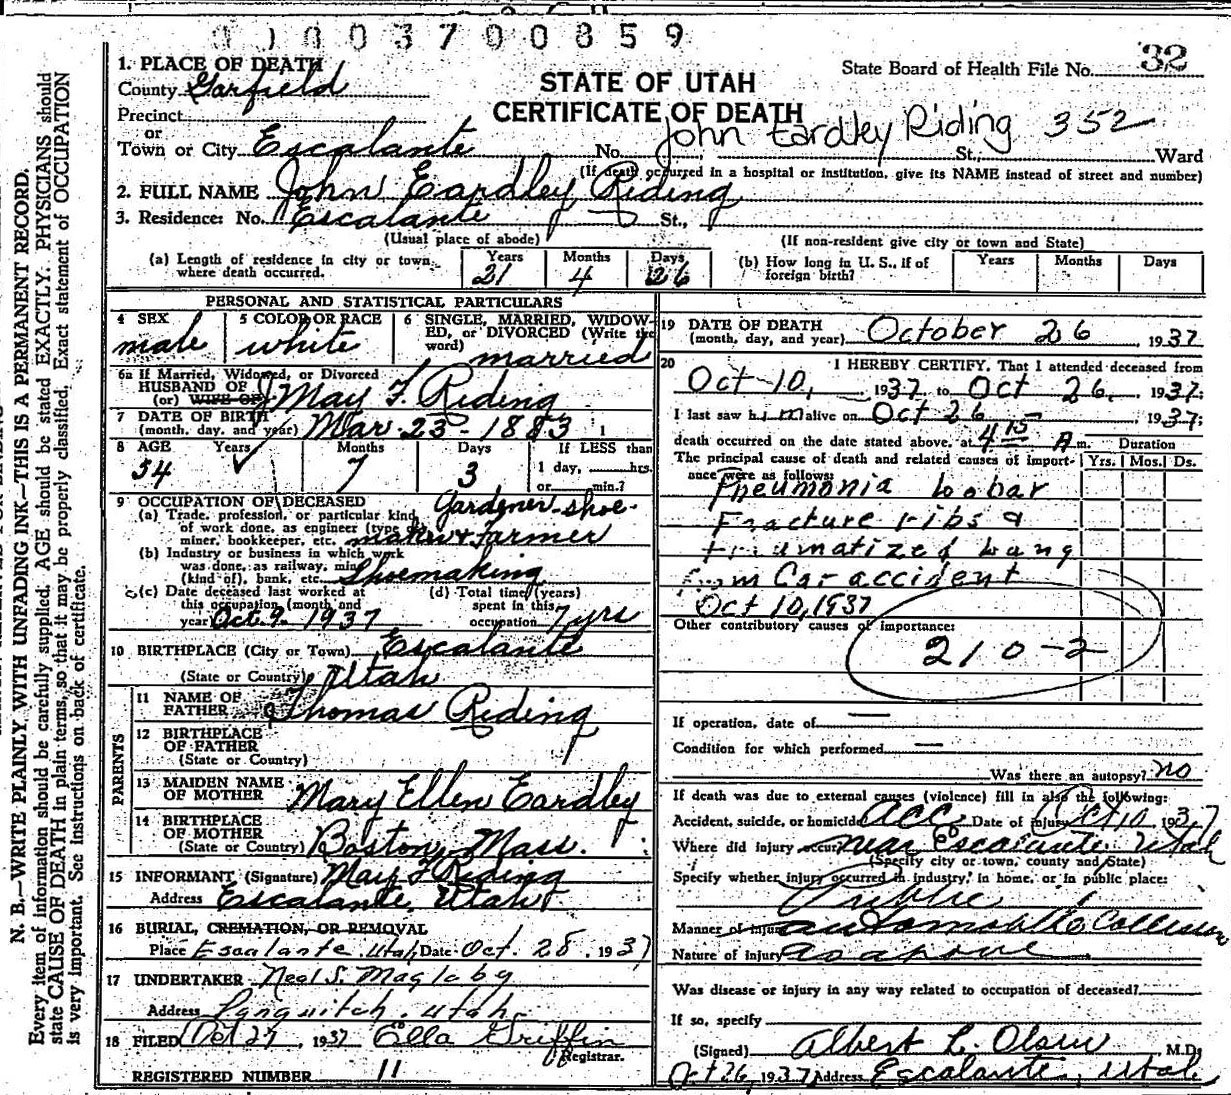 0 1 0 0 3 7 0 0 8 5 9
32
State Board of Health File No.
STATE OF UTAH
CERTIFICATE OF DEATH
John Eardley Riding 352
1. PLACE OF DEATH
County Garfield
Precinct
or
Town or City Escalante No. St., Ward
(If death occurred in a hospital or institution, give its NAME instead of street and number)
2. FULL NAME John Eardley Riding
3. Residence: No. Escalante St.,
(Usual place of abode) (If non-resident give city or town and State)
(a) Length of residence in city or town where death occurred. Years 21 Months 4 Days 26
(b) How long in U. S., if of foreign birth? Years Months Days
PERSONAL AND STATISTICAL PARTICULARS
4 SEX
male
5 COLOR OR RACE
white
6 SINGLE, MARRIED, WIDOW-
ED, or DIVORCED (Write the
word) married
6a If Married, Widowed, or Divorced
HUSBAND OF
(or) WIFE OF May F. Riding
7 DATE OF BIRTH
(month, day, and year) Mar. 23 - 1883
8 AGE Years Months Days If LESS than
54 7 3 1 day, hrs.
or min.?
9 OCCUPATION OF DECEASED
(a) Trade, profession, or particular kind
of work done, as engineer (type
miner, bookkeeper, etc. Gardener-shoe-
maker & Farmer
(b) Industry or business in which work
was done, as railway, mine
(kind of), bank, etc. Shoemaking
(c) Date deceased last worked at
this occupation (month and
year) Oct. 9 - 1937
(d) Total time (years)
spent in this
occupation 7 yrs
10 BIRTHPLACE (City or Town) Escalante
(State or Country) Utah
PARENTS
11 NAME OF
FATHER Thomas Riding
12 BIRTHPLACE
OF FATHER
(State or Country)
13 MAIDEN NAME
OF MOTHER Mary Ellen Eardley
14 BIRTHPLACE
OF MOTHER
(State or Country) Boston, Mass.
15 INFORMANT (Signature) May F Riding
Address Escalante, Utah
16 BURIAL, CREMATION, OR REMOVAL
Place Escalante, Utah Date Oct. 28, 1937
17 UNDERTAKER Neal S. Magleby
Address Panguitch, Utah
18 FILED Oct 27, 1937 Ella Griffin
Registrar.
REGISTERED NUMBER 11
19 DATE OF DEATH
(month, day, and year) October 26, 1937
20 I HEREBY CERTIFY, That I attended deceased from
Oct-10, 1937, to Oct 26, 1937;
I last saw him alive on Oct 26, 1937;
death occurred on the date stated above, at 4 15 A m. Duration
The principal cause of death and related causes of import- Yrs. Mos. Ds.
ance were as follows:
Pneumonia Lobar
Fracture ribs &
traumatized Lung
from Car accident
Oct 10, 1937
Other contributory causes of importance:
210-2
If operation, date of —
Condition for which performed —
Was there an autopsy? no
If death was due to external causes (violence) fill in also the following:
Accident, suicide, or homicide Acc Date of injury Oct 10 1937
Where did injury occur near Escalante Utah
(Specify city or town, county and State)
Specify whether injury occurred in industry, in home, or in public place:
Public
Manner of injury automobile Collision
Nature of injury as above
Was disease or injury in any way related to occupation of deceased?
If so, specify
(Signed) Albert L. Olsen M.D.
Oct 26, 1937 Address Escalante, Utah
N. B.—WRITE PLAINLY WITH UNFADING INK—THIS IS A PERMANENT RECORD.
Every item of information should be carefully supplied. AGE should be stated EXACTLY. PHYSICIANS should
state CAUSE OF DEATH in plain terms, so that it may be properly classified. Exact statement of OCCUPATION
is very important. See instructions on back of certificate.